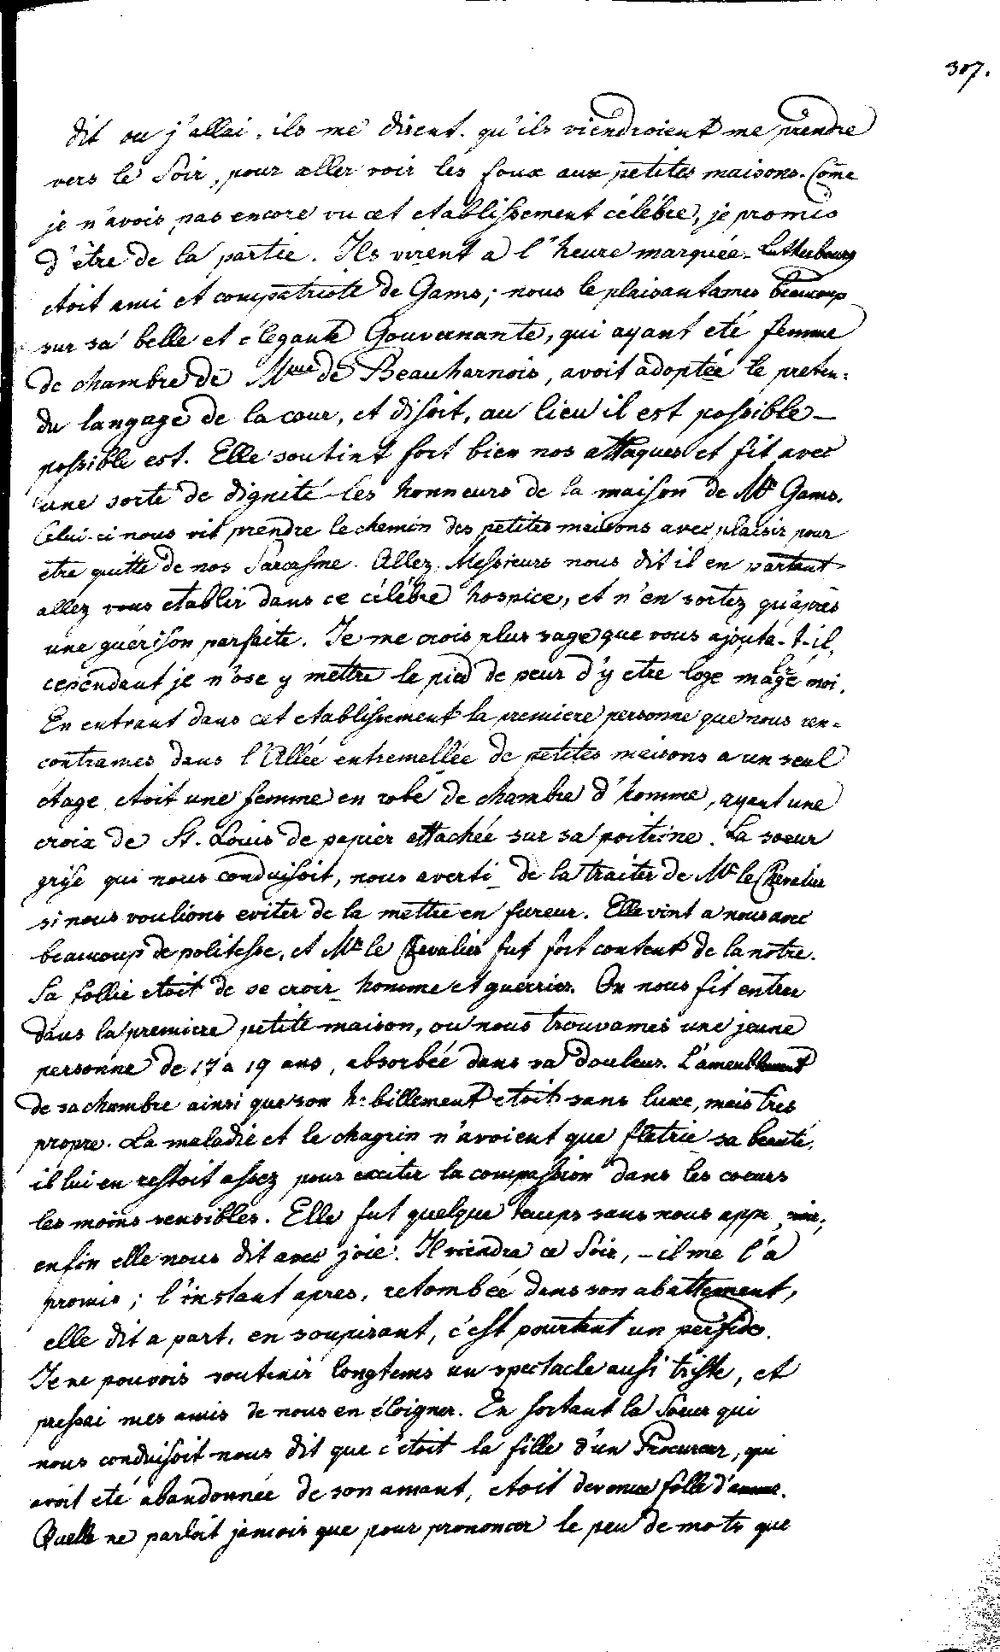 307.
dit ou j'allai, ils me disent qu'ils viendroient me prendre
vers le Soir, pour aller voir les foux aux petites maisons. Come
je n'avois pas encore vu cet etablissement célébre, je promis
d'être de la partie. Ils vinrent a l'heure marquée. Lutherbourg
etoit ami et compatriote de Gams; nous le plaisantames beaucoup
sur sa belle et élégante Gouvernante, qui ayant eté femme
de chambre de Mme de Beauharnois, avoit adoptée le preten-
du langage de la cour, et disoit, au lieu il est possible –
possible est. Elle soutint fort bien nos attaques et fit avec
une sorte de dignité les honneurs de la maison de Mr Gams.
Celui-ci nous vit prendre le chemin des petites maisons avec plaisir pour
etre quitte de nos Sarcasme. Allez, Messieurs nous dit il en partant
allez vous etablir dans ce célébre hospice, et n'en sortez qu'après
une guérison parfaite. Je me crois plus sage que vous ajouta-t-il,
cependant je n'ose y mettre le pied de peur d'y etre logé magré moi.
En entrant dans cet etablissement la premiere personne que nous ren-
contrames dans l'Allée entremellée de petites maisons a un seul
étage etoit une femme en robe de chambre d'homme, ayant une
croix de St. Louis de papier attachée sur sa poitrine. La soeur
grise qui nous conduisoit, nous averti de la traiter de Mr le Chevalier
si nous voulions eviter de la mettre en fureur. Elle vint a nous avec
beaucoup de politesse, et Mr le Chevalier fut fort content de la notre.
Sa follie etoit de se croir homme et guerrier. On nous fit entrer
dans la premiere petite maison, ou nous trouvames une jeune
personne de 17 a 19 ans, absorbée dans sa douleur. L'ameublement
de sa chambre ainsi que son habillement etoit sans luxe, mais tres
propre. La maladie et le chagrin n'avoient que fletrie sa beauté,
il lui en restoit assez pour exciter la compassion dans les coeurs
les moins sensibles. Elle fut quelque temps sans nous
enfin elle nous dit avec joie. Il viendra ce Soir, – il me l'a
promis; l'instant apres, retombée dans son abattement,
elle dit a part, en soupirant, c'est pourtant un perfide.
Je ne pouvois soutenir longtems un spectacle aussi triste, et
pressai mes amis de nous en éloigner. En sortant la Soeur qui
nous conduisoit nous dit que c'etoit la fille d'un Procureur, qui
avoit eté abandonnée de son amant, etoit devenue folle d'amour.
Quelle ne parloit jamais que pour prononcer le peu de mots que